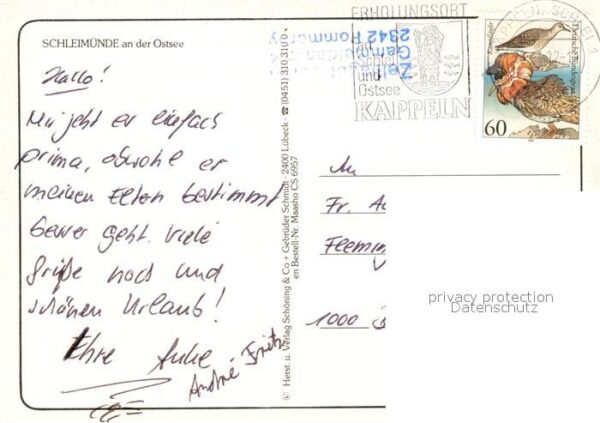 SCHLEIMÜNDE an der Ostsee
Hallo!
Mir geht es einfach
prima, obwohl es
meinen Eltern bestimmt
besser geht. Viele
Grüße noch und
schönen Urlaub!
Ihre Anke
André
Herst. u. Verlag Schöning & Co + Gebrüder Schmidt · 2400 Lübeck · ☎ (0451) 310 310
en Bestell-Nr. Maasho CS 6957
2342 Pommerby
ERHOLUNGSORT
an
Schlei
und
Ostsee
KAPPELN
Deutsche Bundespost
60
An
Fr.
Flemin
1000
privacy protection
Datenschutz